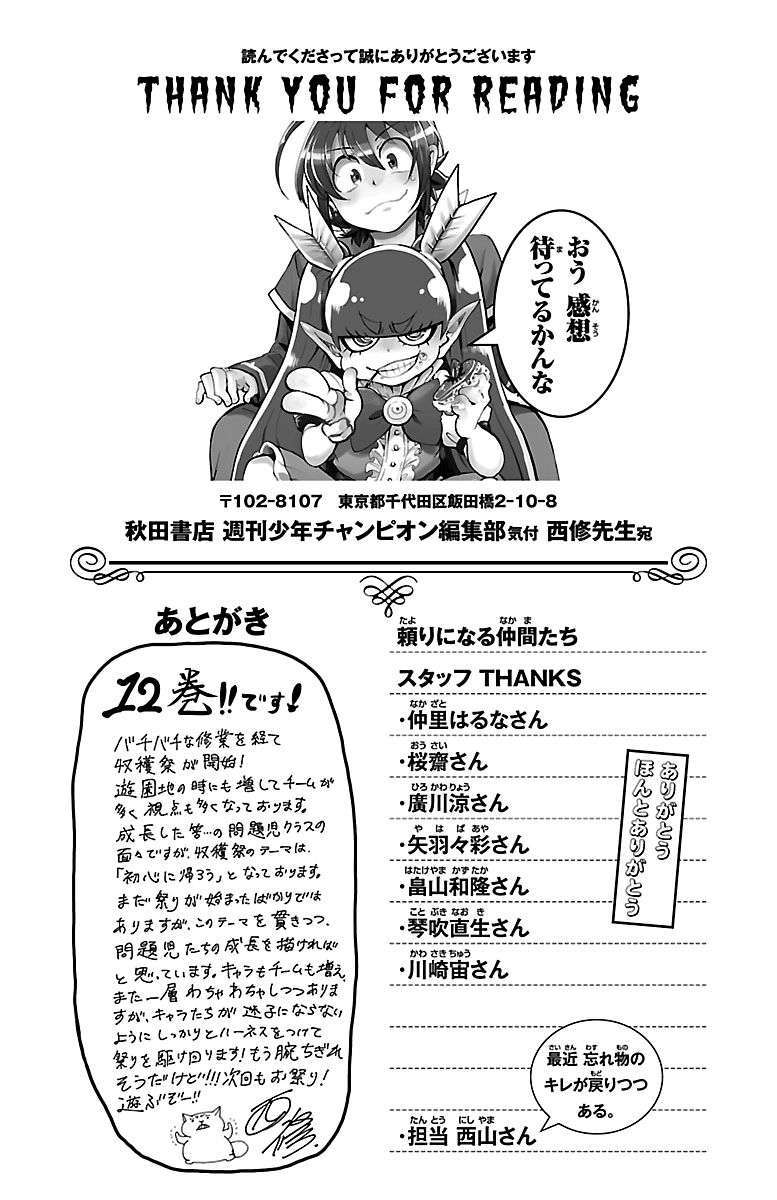 読んでくださって誠にありがとうございます
THANK YOU FOR READING
おう 感想
待ってるかんな
〒102-8107　東京都千代田区飯田橋2-10-8
秋田書店 週刊少年チャンピオン編集部気付 西修先生宛
あとがき
12巻!!です!
バチバチな修業を経て
収穫祭が開始!
遊園地の時にも増してチームが
多く視点も多くなっております。
成長した筈…の問題児クラスの
面々ですが、収穫祭のテーマは、
「初心に帰ろう」となっております。
まだ祭りが始まったばかりでは
ありますが、このテーマを貫きつつ、
問題児たちの成長を描ければ
と思っています。キャラもチームも増え、
また一層わちゃわちゃしつつありま
すが、キャラたちが迷子にならない
ようにしっかりとハーネスをつけて
祭りを駆け回ります!もう腕ちぎれ
そうだけど!!!次回もお祭り!
遊ぶぞー!!
西修
頼りになる仲間たち
スタッフ THANKS
・仲里はるなさん
・桜齋さん
・廣川涼さん
・矢羽々彩さん
・畠山和隆さん
・琴吹直生さん
・川崎宙さん
ありがとう
ほんとありがとう
最近 忘れ物の
キレが戻りつつ
ある。
・担当 西山さん